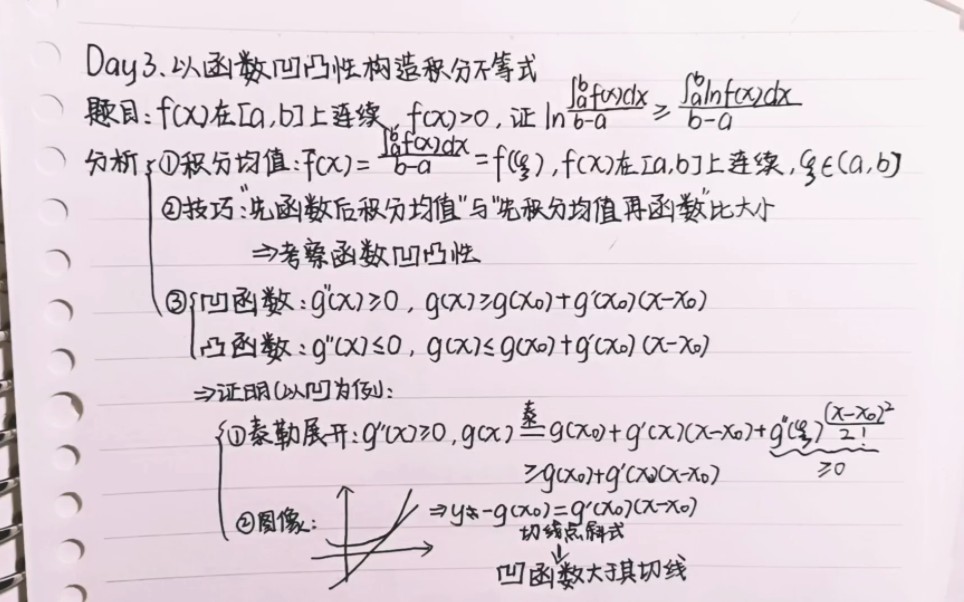 Day3、以函数凹凸性构造积分不等式
题目:f(x)在[a,b]上连续,f(x)>0,证 ln \frac{∫_a^b f(x)dx}{b-a} ≥ \frac{∫_a^b lnf(x)dx}{b-a}
分析 ①积分均值:f̄(x)=\frac{∫_a^b f(x)dx}{b-a}=f(ξ),f(x)在[a,b]上连续,ξ∈(a,b]
②技巧:"先函数后积分均值"与"先积分均值再函数"比大小
⇒考察函数凹凸性
③凹函数:g''(x)≥0,g(x)≥g(x₀)+g'(x₀)(x-x₀)
凸函数:g''(x)≤0,g(x)≤g(x₀)+g'(x₀)(x-x₀)
⇒证明(以凹为例):
①泰勒展开:g''(x)≥0,g(x) \overset{泰}{=} g(x₀)+g'(x)(x-x₀)+g''(ξ)\frac{(x-x₀)²}{2!}
≥g(x₀)+g'(x)(x-x₀) ≥0
②图像: ⇒y-g(x₀)=g'(x₀)(x-x₀)
切线点斜式
↓
凹函数大于其切线